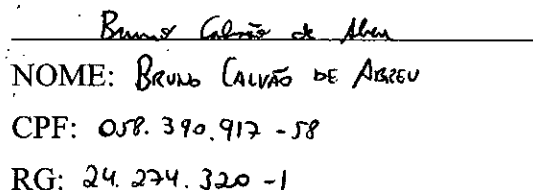 Bruno Calvão de Abreu
NOME: BRUNO CALVÃO DE ABREU
CPF: 058.390.917-58
RG: 24.274.320-1